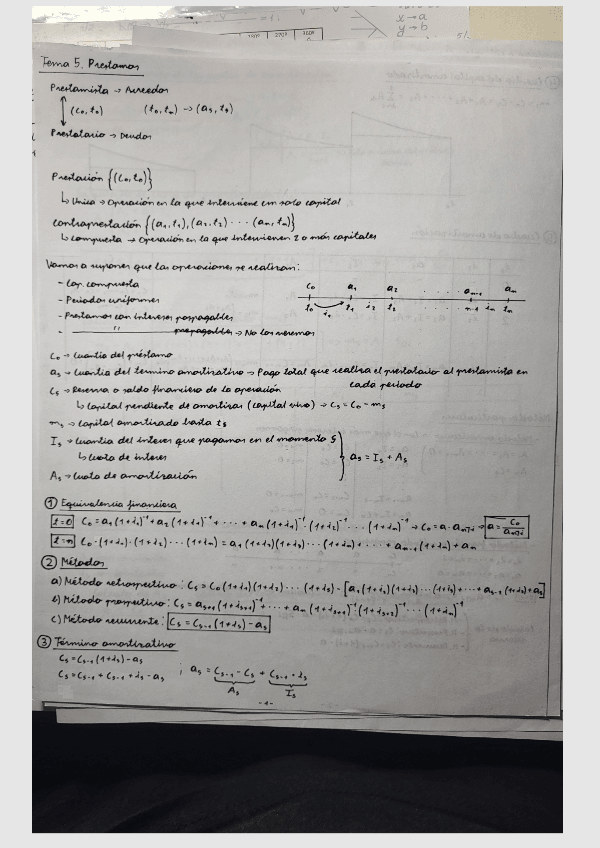 x → a
y → b
180º 270º 360º
Tema 5. Prestamos
Prestamista → Acreedor
(C₀, t₀) (t₀, tₙ) → (aₛ, tₛ)
Prestatario → Deudor
Prestación {(C₀, t₀)}
↳ Unica → Operación en la que interviene un solo capital
Contraprestación {(a₁, t₁), (a₂, t₂) · · · (aₙ, tₙ)}
↳ compuesta → Operación en la que intervienen 2 o más capitales
Vamos a suponer que las operaciones se realizan:
- Cap. compuesta
- Periodos uniformes
- Prestamos con intereses pospagables
- ———— " ———— prepagables → No los veremos
C₀ a₁ a₂ · · · · aₙ₋₁ aₙ
t₀ i₁ t₁ i₂ t₂ · · · · n-1 iₙ tₙ
C₀ → Cuantía del préstamo
aₛ → Cuantía del termino amortizativo → Pago total que realiza el prestatario al prestamista en
cada periodo
Cₛ → Reserva o saldo financiero de la operación
↳ Capital pendiente de amortizar (capital vivo) → Cₛ = C₀ - mₛ
mₛ → Capital amortizado hasta tₛ
Iₛ → Cuantía del interes que pagamos en el momento S
↳ Cuota de interes
aₛ = Iₛ + Aₛ
Aₛ → Cuota de amortización
① Equivalencia financiera
t=0 C₀ = a₁(1+i₁)⁻¹ + a₂(1+i₁)⁻¹(1+i₂)⁻¹ + · · · + aₙ(1+i₁)⁻¹(1+i₂)⁻¹ · · · (1+iₙ)⁻¹ → C₀ = a · aₙ¬i → a = C₀/aₙ¬i
t=n C₀ · (1+i₁) · (1+i₂) · · · (1+iₙ) = a₁(1+i₂)(1+i₃) · · · (1+iₙ) + · · · + aₙ₋₁(1+iₙ) + aₙ
② Métodos
a) Método retrospectivo: Cₛ = C₀(1+i₁)(1+i₂) · · · (1+iₛ) - [a₁(1+i₂)(1+i₃) · · · (1+iₛ) + · · · + aₛ₋₁(1+iₛ) + aₛ]
b) Método prospectivo: Cₛ = aₛ₊₁(1+iₛ₊₁)⁻¹ + · · · + aₙ(1+iₛ₊₁)⁻¹(1+iₛ₊₂)⁻¹ · · · (1+iₙ)⁻¹
c) Método recurrente: Cₛ = Cₛ₋₁(1+iₛ) - aₛ
③ Término amortizativo
Cₛ = Cₛ₋₁(1+iₛ) - aₛ
Cₛ = Cₛ₋₁ + Cₛ₋₁ · iₛ - aₛ ; aₛ = Cₛ₋₁ - Cₛ + Cₛ₋₁ · iₛ
Aₛ Iₛ
-1-